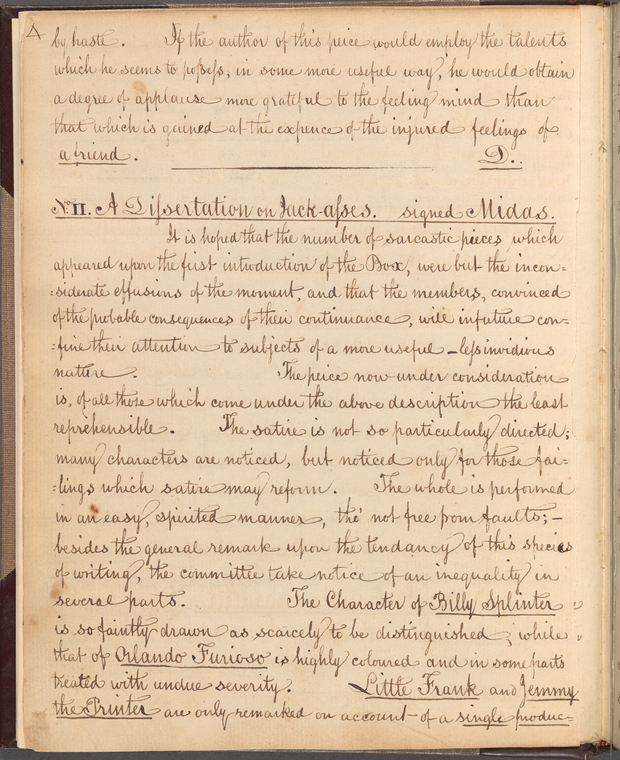 4
by haste. If the author of this peice would employ the talents
which he seems to poſseſs, in some more useful way, he would obtain
a degree of applause more grateful to the feeling mind than
that which is gained at the expence of the injured feelings of
a friend. D..
No. II. A Diſsertation on Jack-aſses. signed Midas.
It is hoped that the number of sarcastic pieces which
appeared upon the first introduction of the Box, were but the incon=
=siderate effusions of the moment, and that the members, convinced
of the probable consequences of their continuance, will in future con=
=fine their attention to subjects of a more useful – leſs invidious
nature. The peice now under consideration
is, of all those which come under the above description the least
reprehensible. The satire is not so particularly directed;
many characters are noticed, but noticed only for those fai=
=lings which satire may reform. The whole is performed
in an easy, spirited manner, tho' not free from faults; –
besides the general remark upon the tendancy of this species
of writing, the committee take notice of an inequality in
several parts. The Character of Billy Splinter
is so faintly drawn as scarcely to be distinguished, while
that of Orlando Furioso is highly coloured and in some parts
treated with undue severity. Little Frank and Jemmy
the Printer are only remarked on account of a single produc=